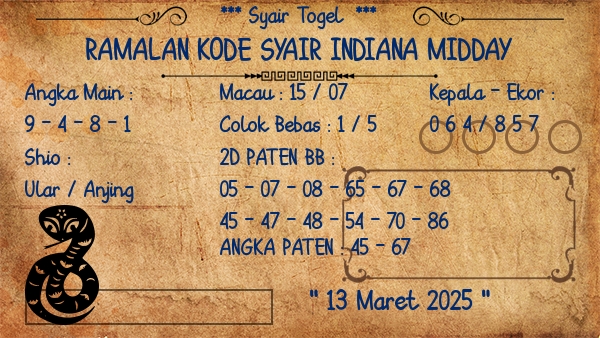 *** Syair Togel ***
RAMALAN KODE SYAIR INDIANA MIDDAY
Angka Main :
9 - 4 - 8 - 1
Shio :
Ular / Anjing
Macau : 15 / 07
Colok Bebas : 1 / 5
2D PATEN BB :
05 - 07 - 08 - 65 - 67 - 68
45 - 47 - 48 - 54 - 70 - 86
ANGKA PATEN : 45 - 67
Kepala - Ekor :
0 6 4 / 8 5 7
" 13 Maret 2025 "